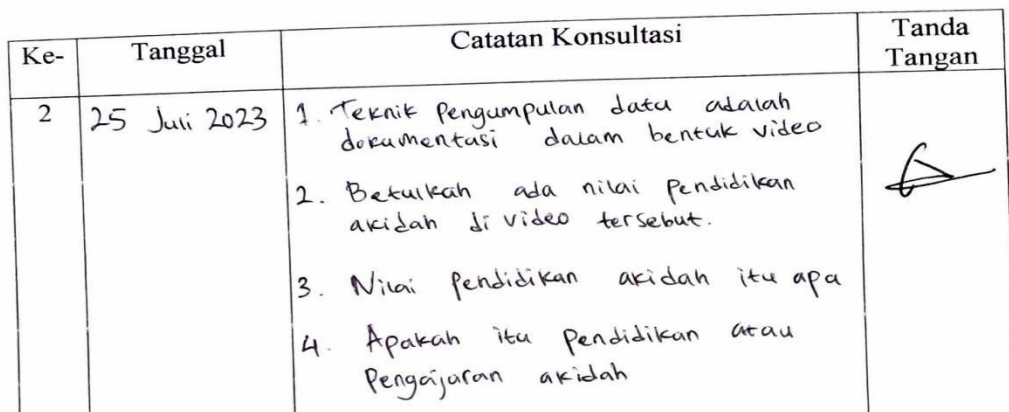 Ke- Tanggal Catatan Konsultasi Tanda
Tangan
2 25 Juli 2023 1. Teknik Pengumpulan data adalah
dokumentasi dalam bentuk video
2. Betulkah ada nilai pendidikan
akidah di video tersebut.
3. Nilai pendidikan akidah itu apa
4. Apakah itu pendidikan atau
Pengajaran akidah